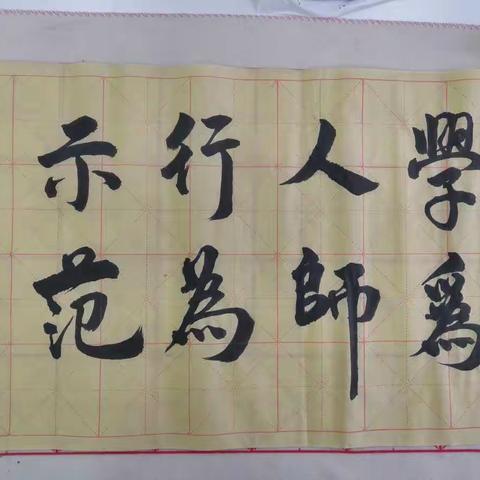 學爲
人師
行為
示范